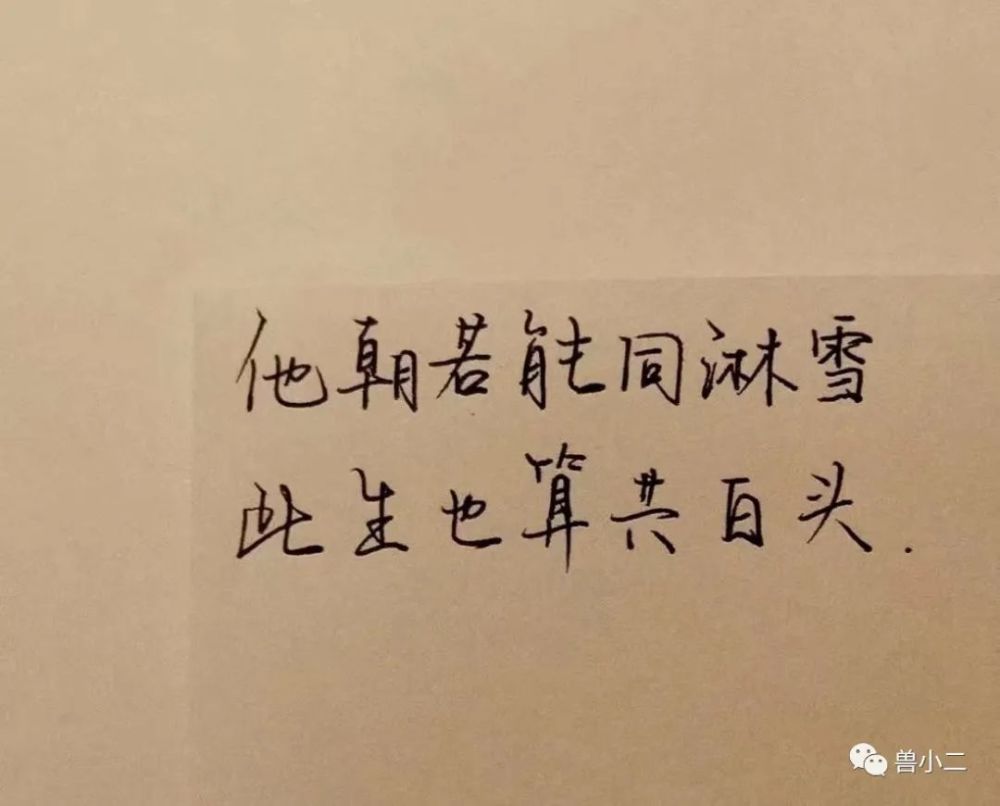 他朝若能同淋雪
此生也算共白头.
兽小二